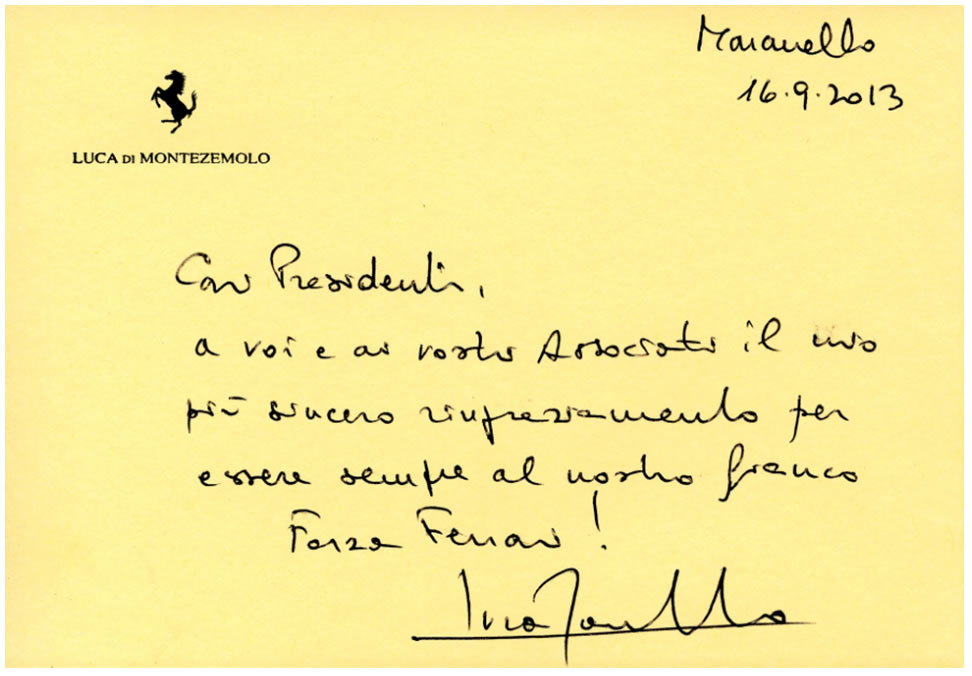 Maranello
16.9.2013
LUCA DI MONTEZEMOLO
Cari Presidenti,
a voi e ai vostri Associati il mio
più sincero ringraziamento per
essere sempre al nostro fianco
Forza Ferrari!